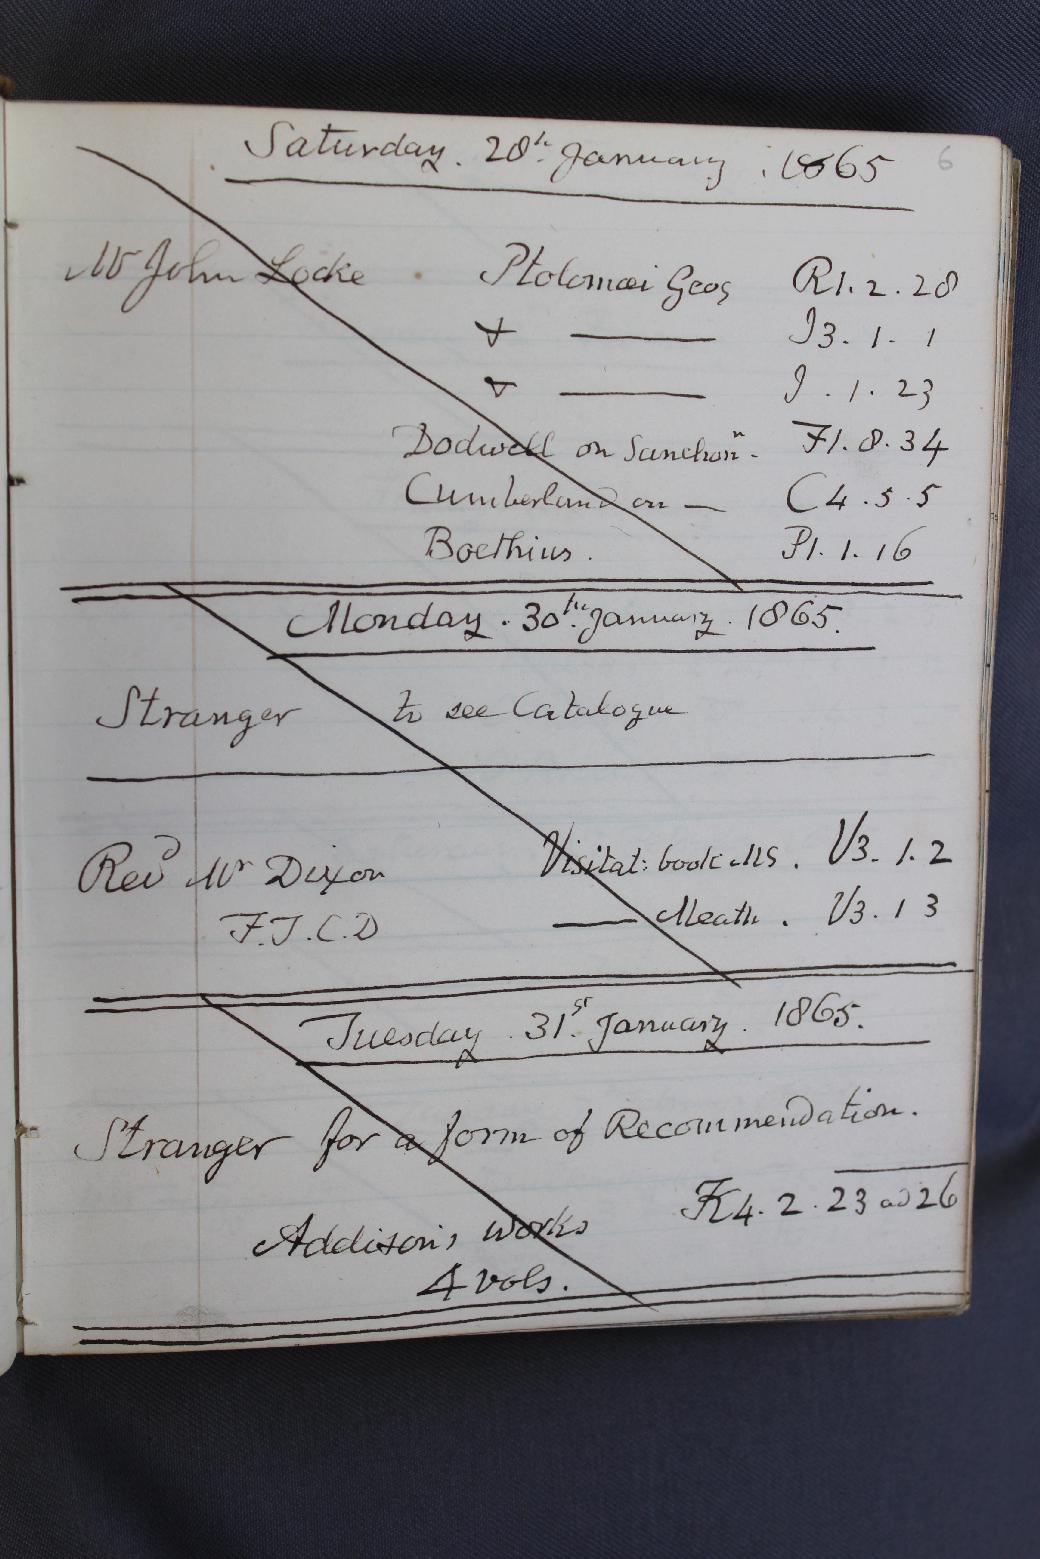 6
Saturday. 28th January. 1865
Mr John Locke Ptolomæi Geog R1.2.28
+ —— I3.1.1
+ —— I.1.23
Dodwell on Sanchonn. F1.8.34
Cumberland on — C4.5.5
Boethius. P1.1.16
Monday. 30th January. 1865.
Stranger to see Catalogue
Revd Mr Dixon Visitat: book MS. V3.1.2
F.T.C.D —— Meath. V3.1 3
Tuesday. 31st January. 1865.
Stranger for a form of Recommendation.
K4.2.23 ad 26
Addison's works
4 vols.